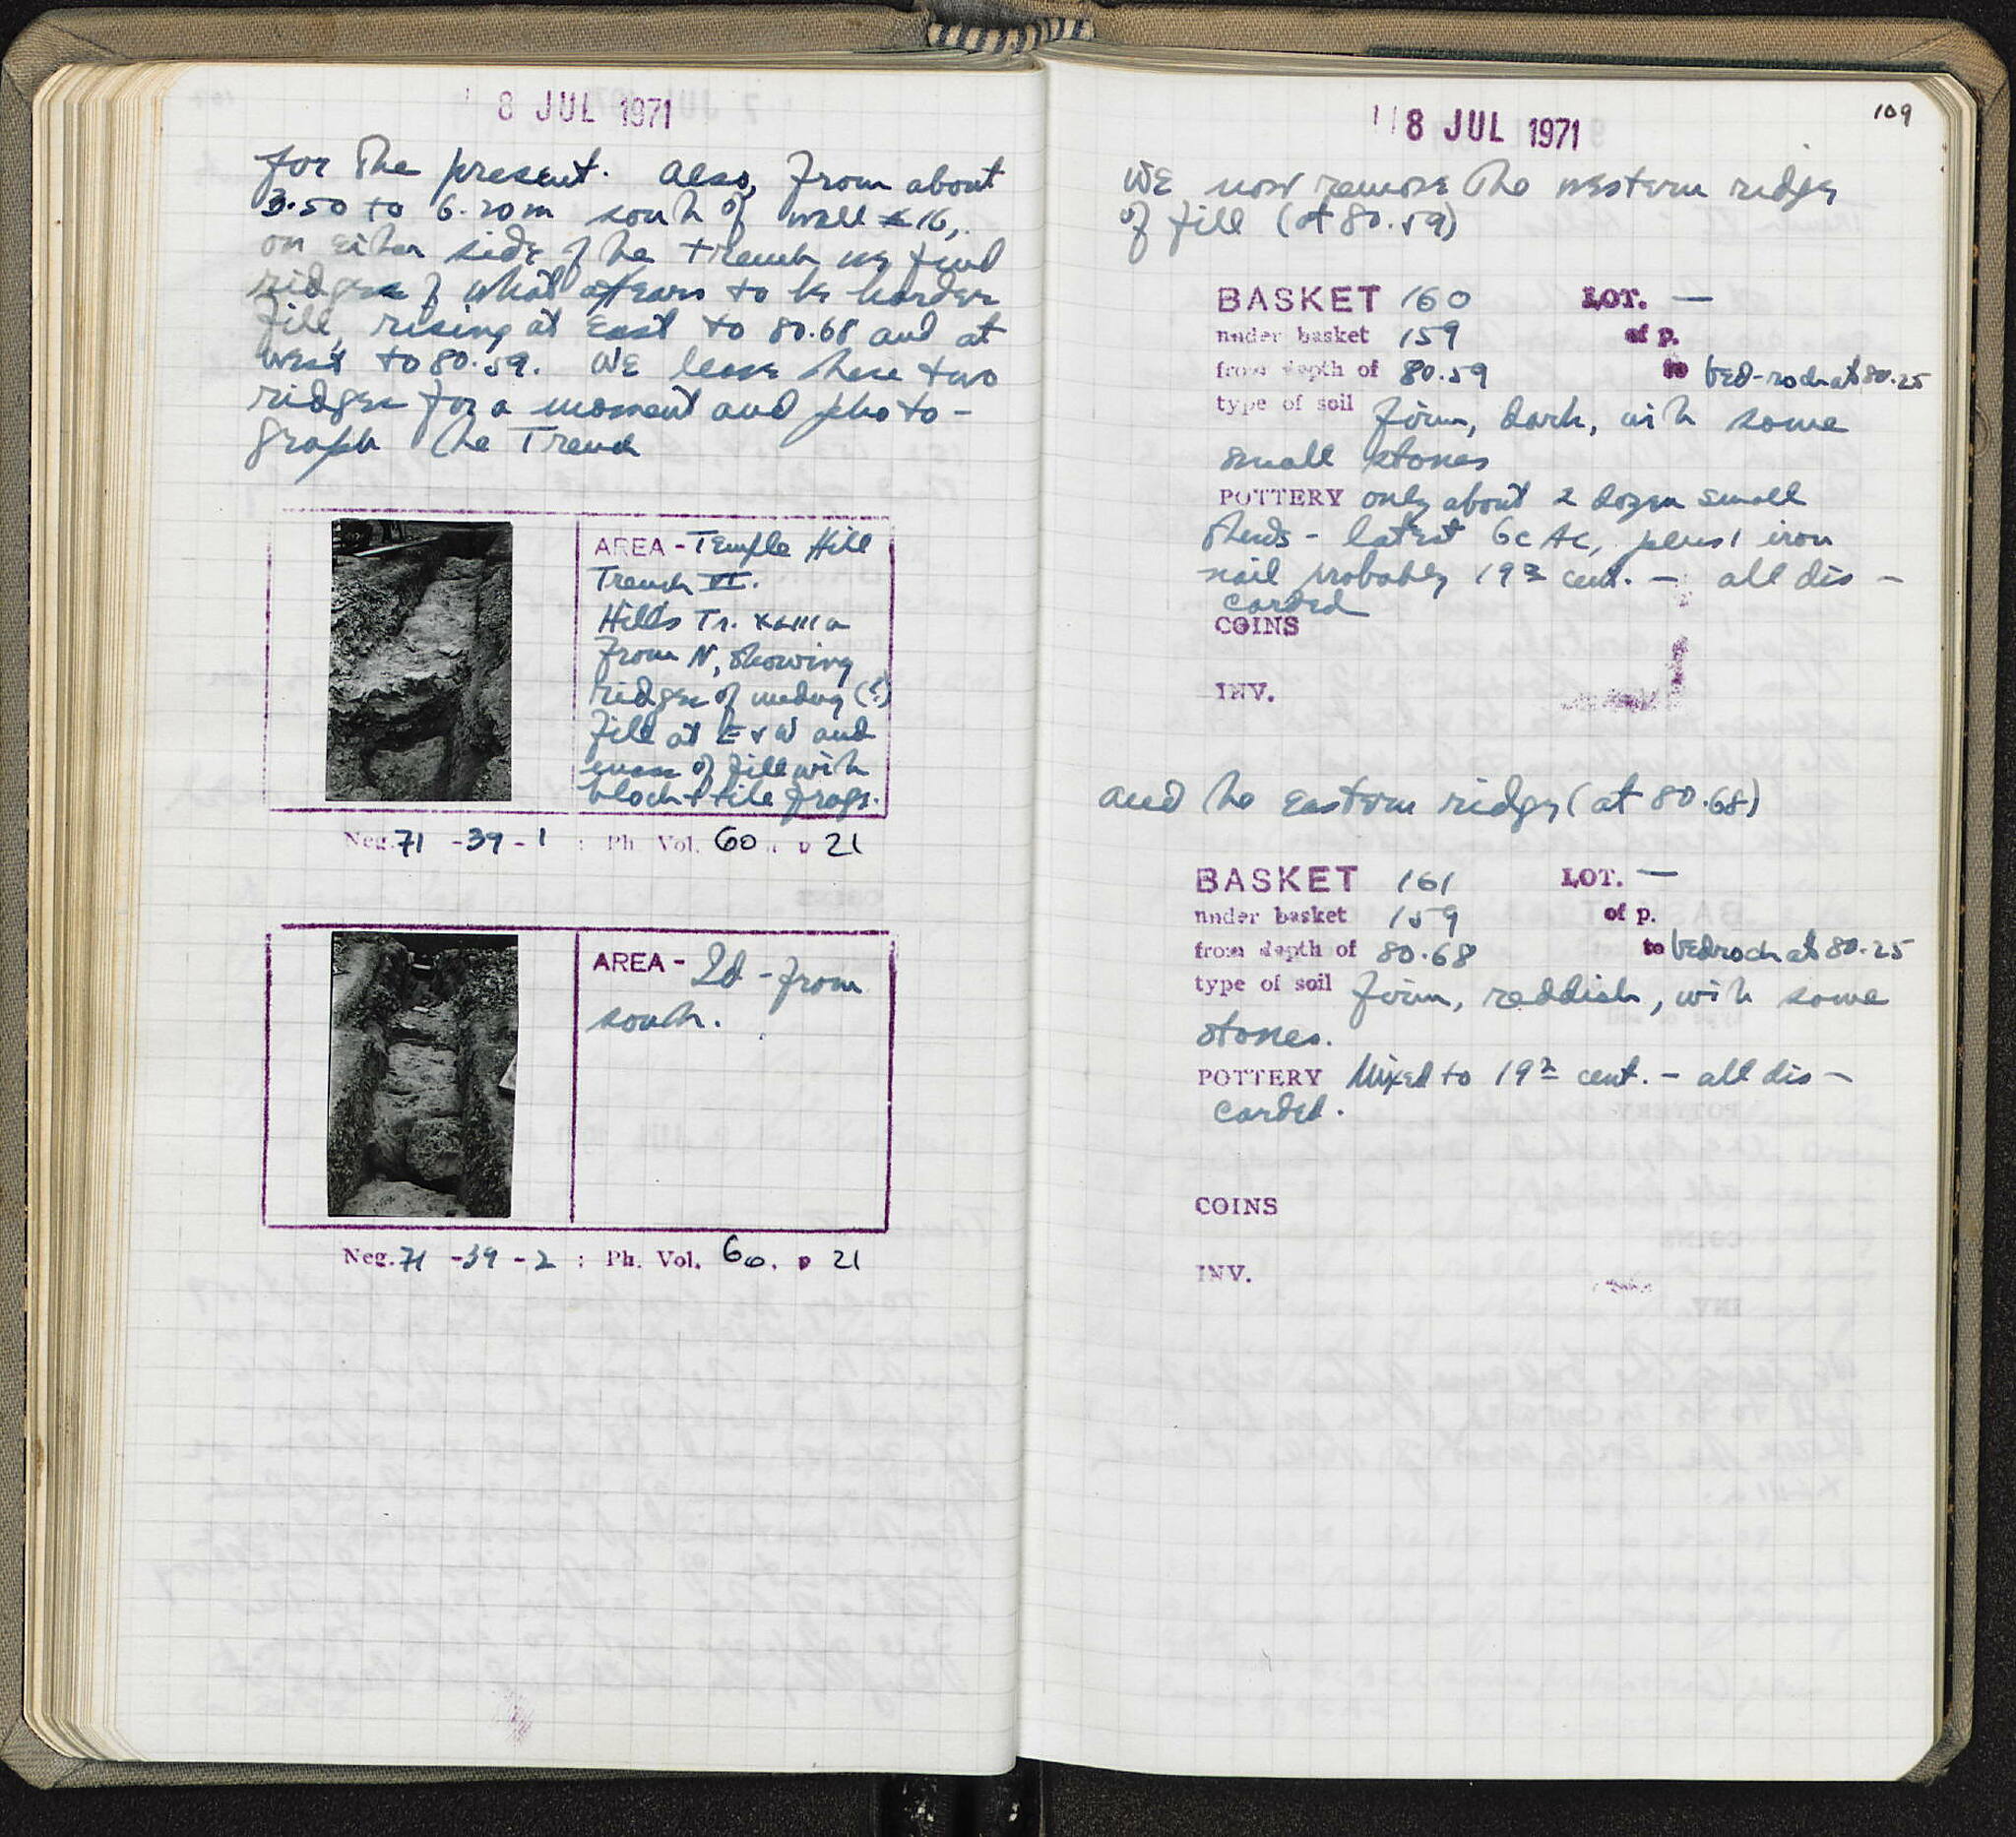 8 JUL 1971
for The present. Also, from about
3.50 to 6.20m south of wall 16,
on either side of the trench we find
ridges of what appears to be harder
fill, rising at East to 80.68 and at
West to 80.59. WE leave these two
ridges for a moment and photo-
graph the Trench
AREA - Temple Hill
Trench VI.
Hill's Tr. XLIII a
from N, showing
ridges of undug (?)
fill at E + W and
mass of fill with
block + tile frags.
Neg. 71 - 39 - 1 : Ph. Vol. 60 p 21
AREA - Id - from
south.
Neg. 71 - 39 - 2 : Ph. Vol. 60. p 21
109
8 JUL 1971
WE now remove the western ridge
of fill (at 80.59)
BASKET 160 LOT. —
under basket 159 of p.
from depth of 80.59 to bed-rock at 80.25
type of soil firm, dark, with some
small stones
POTTERY only about 2 dozen small
sherds - latest 6c AC, plus 1 iron
nail probably 19th cent. - all dis-
carded
COINS
INV.
and the Eastern ridge (at 80.68)
BASKET 161 LOT. —
under basket 159 of p.
from depth of 80.68 to bedrock at 80.25
type of soil firm, reddish, with some
stones.
POTTERY Mixed to 19th cent. - all dis-
carded.
COINS
INV.